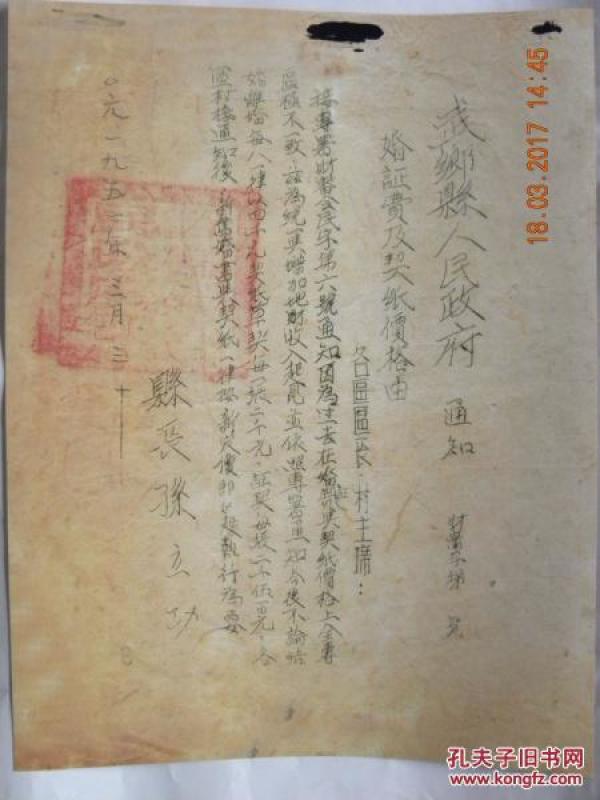 武鄉縣人民政府 通知 財 字第 號
婚証費及契紙價格由
各區區長 村主席：
接專署財 字第六號通知因為过去在婚 與契紙價格上全專
區極不一致，茲為統一與增加地財收入起見並依照專署通知今後不論結
婚離婚每 一律 千元契紙草契每張二千元，証契每張一千伍百元，各
區村接通知後，新 婚書與契紙一律按新定價即 起執行為要
縣長孫立功
公元一九五一年三月三十
18.03.2017 14:45
孔夫子旧书网
www.kongfz.com